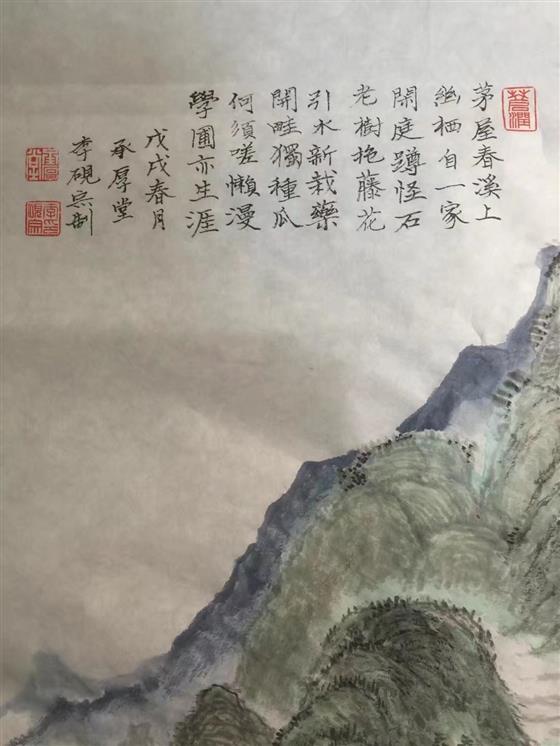 蒼潤
茅屋春溪上
幽栖自一家
閑庭蹲怪石
老樹抱藤花
引水新栽藥
開畦獨種瓜
何須嗟懶漫
學圃亦生涯
戊戌春月
承厚堂
李硯宗制